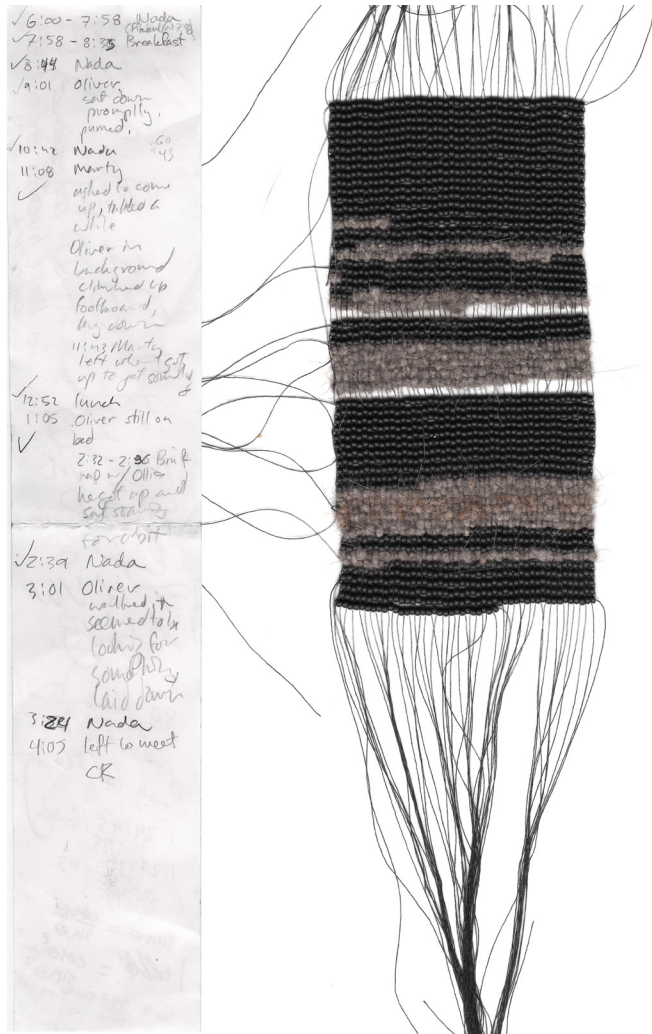 ✓6:00 - 7:58 Nada
✓7:58 - 8:35 Breakfast
✓8:44 Nada
✓9:01 Oliver,
sat down
promptly,
purred,
✓10:42 Nada
11:08 Marty
✓ asked to come
up, talked a
while
Oliver in
background
climbed up
footboard,
lay down
11:43 Marty
left when I got
up to get
✓12:52 lunch
1:05 Oliver still on
✓ bed
2:32 - Brief
nap w/ Ollie
he got up and
sat
for a bit
✓2:39 Nada
3:01 Oliver
walked in
seemed to be
looking for
something
laid down
3:24 Nada
4:05 left to meet
CR